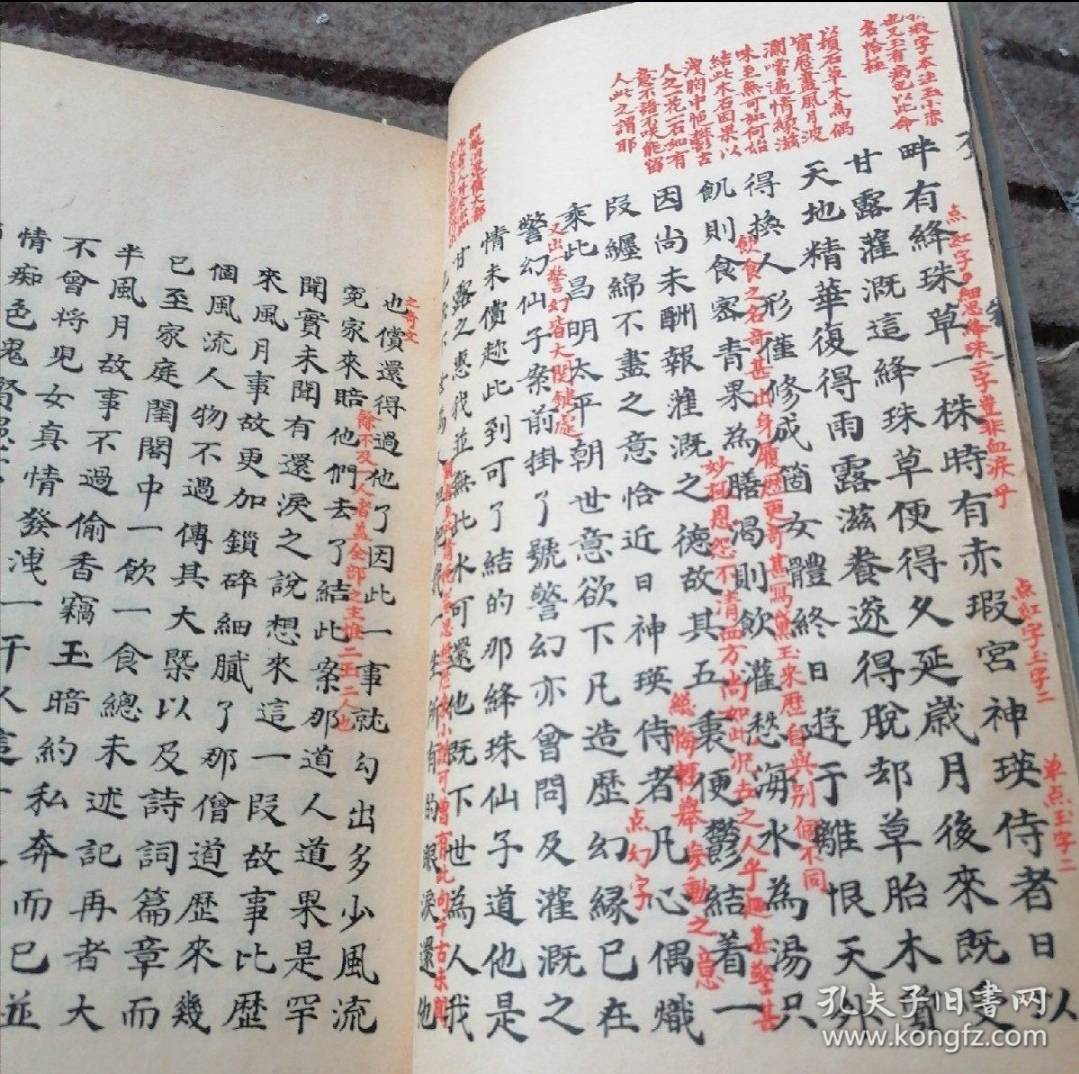 畔有絳珠草一株時有赤瑕宮神瑛侍者日以
甘露灌溉這絳珠草便得久延歲月後來既受
天地精華復得雨露滋養遂得脫却草胎木質
得換人形僅修成箇女體終日遊于離恨天外
飢則食蜜青果為膳渴則飲灌愁海水為湯只
因尚未酬報灌溉之德故其五衷便鬱結着一
段纏綿不盡之意恰近日神瑛侍者凡心偶熾
乘此昌明太平朝世意欲下凡造歷幻緣已在
警幻仙子案前掛了號警幻亦曾問及灌溉之
情未償趂此到可了結的那絳珠仙子道他是
甘露之惠我並無此水可還他既下世為人我
所有的眼淚還他
也償還得過他了因此一事就勾出多少風流
冤家來賠他們去了結此案那道人道果是罕
聞實未聞有還淚之說想來這一段故事比歷
來風月事故更加鎖碎細膩了那僧道歷來幾
個風流人物不過傳其大槩以及詩詞篇章而
已至家庭閨閣中一飲一食總未述記再者大
半風月故事不過偷香竊玉暗約私奔而已並
不曾將兒女真情發洩一干人這
情痴色鬼賢
瑕字本注玉小赤
也又玉有病也以此命
名恰極
以頑石草木為偶
實歷盡風月波
瀾嘗遍情緣滋
味至無可如何始
結此木石因果以
洩胸中悒鬱古
人之一花一石如有
意不語不笑能留
人此之謂耶
点紅字
細思絳珠二字豈非血淚乎
点紅字玉字二
单点玉字二
飲食之名奇甚出身履歷更奇甚寫黛玉來歷自與别個不同
妙極恩怨不清西方尚如此况世之人乎趣甚警甚
總悔輕舉妄動之意
点幻字
又出一警幻皆大関鍵處
之奇文
除不及人者蓋全部之主惟二玉二人也
孔夫子旧书网
www.kongfz.com